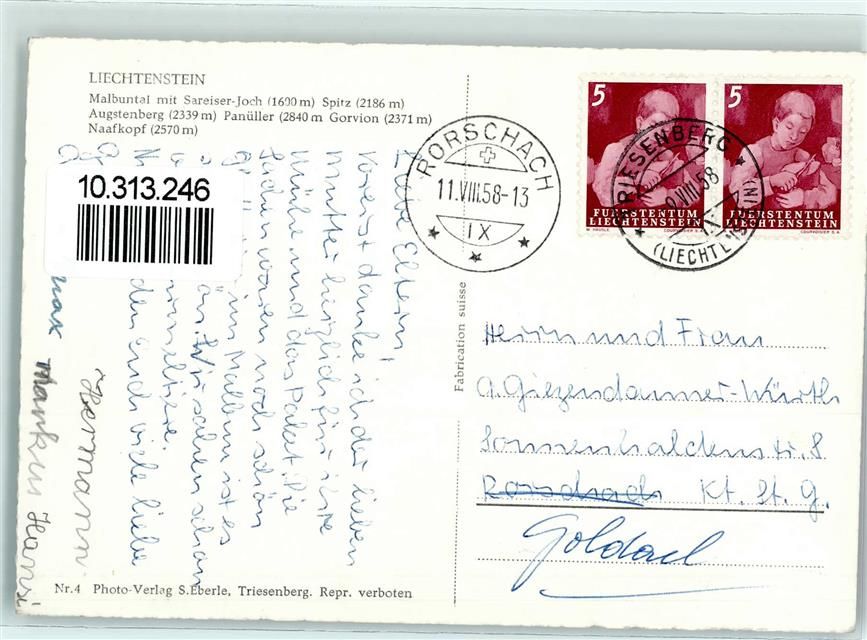 LIECHTENSTEIN
Malbuntal mit Sareiser-Joch (1600 m) Spitz (2186 m)
Augstenberg (2339 m) Panüller (2840 m Gorvion (2371 m)
Naafkopf (2570 m)
10.313.246
Liebe Eltern!
Vorerst danke ich der lieben
Mutter herzlich für ihre
Mühe und das Paket. Die
Sachen waren noch schön
im Malbun ist es
Wir sahen schon
Murmeltiere.
den Euch viele liebe
Hermann
Max Markus Hansi
RORSCHACH
11.VIII.58-13
IX
5
5
FÜRSTENTUM
LIECHTENSTEIN
M. HÄUSLE COURVOISIER S.A.
FÜRSTENTUM
LIECHTENSTEIN
COURVOISIER S.A.
TRIESENBERG
VIII.58
(LIECHTENSTEIN)
Fabrication suisse
Herrn und Frau
A. Giezendanner-Würth
Sonnenhaldenstr. 8
Rorschach Kt. St. G.
Goldach
Nr. 4 Photo-Verlag S. Eberle, Triesenberg. Repr. verboten